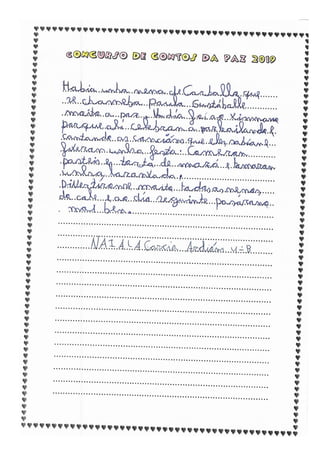 CONCURSO DE CONTOS DA PAZ 2019
Había unha nena de Carballo que
se chamaba Paula. Gustáballe
moito a paz. Un día foi ao Ximnasio
porque alí celebran a paz bailando e
cantando as cancións que eles sabían e
fixeron unha festa. Comeron
pasteis e torta de mazá e tomaron
unha laranxada.
Divertironse moito todas as nenas
do cole e ao día seguinte pasárono
moi ben.
NAIALA García Ardián 4=B